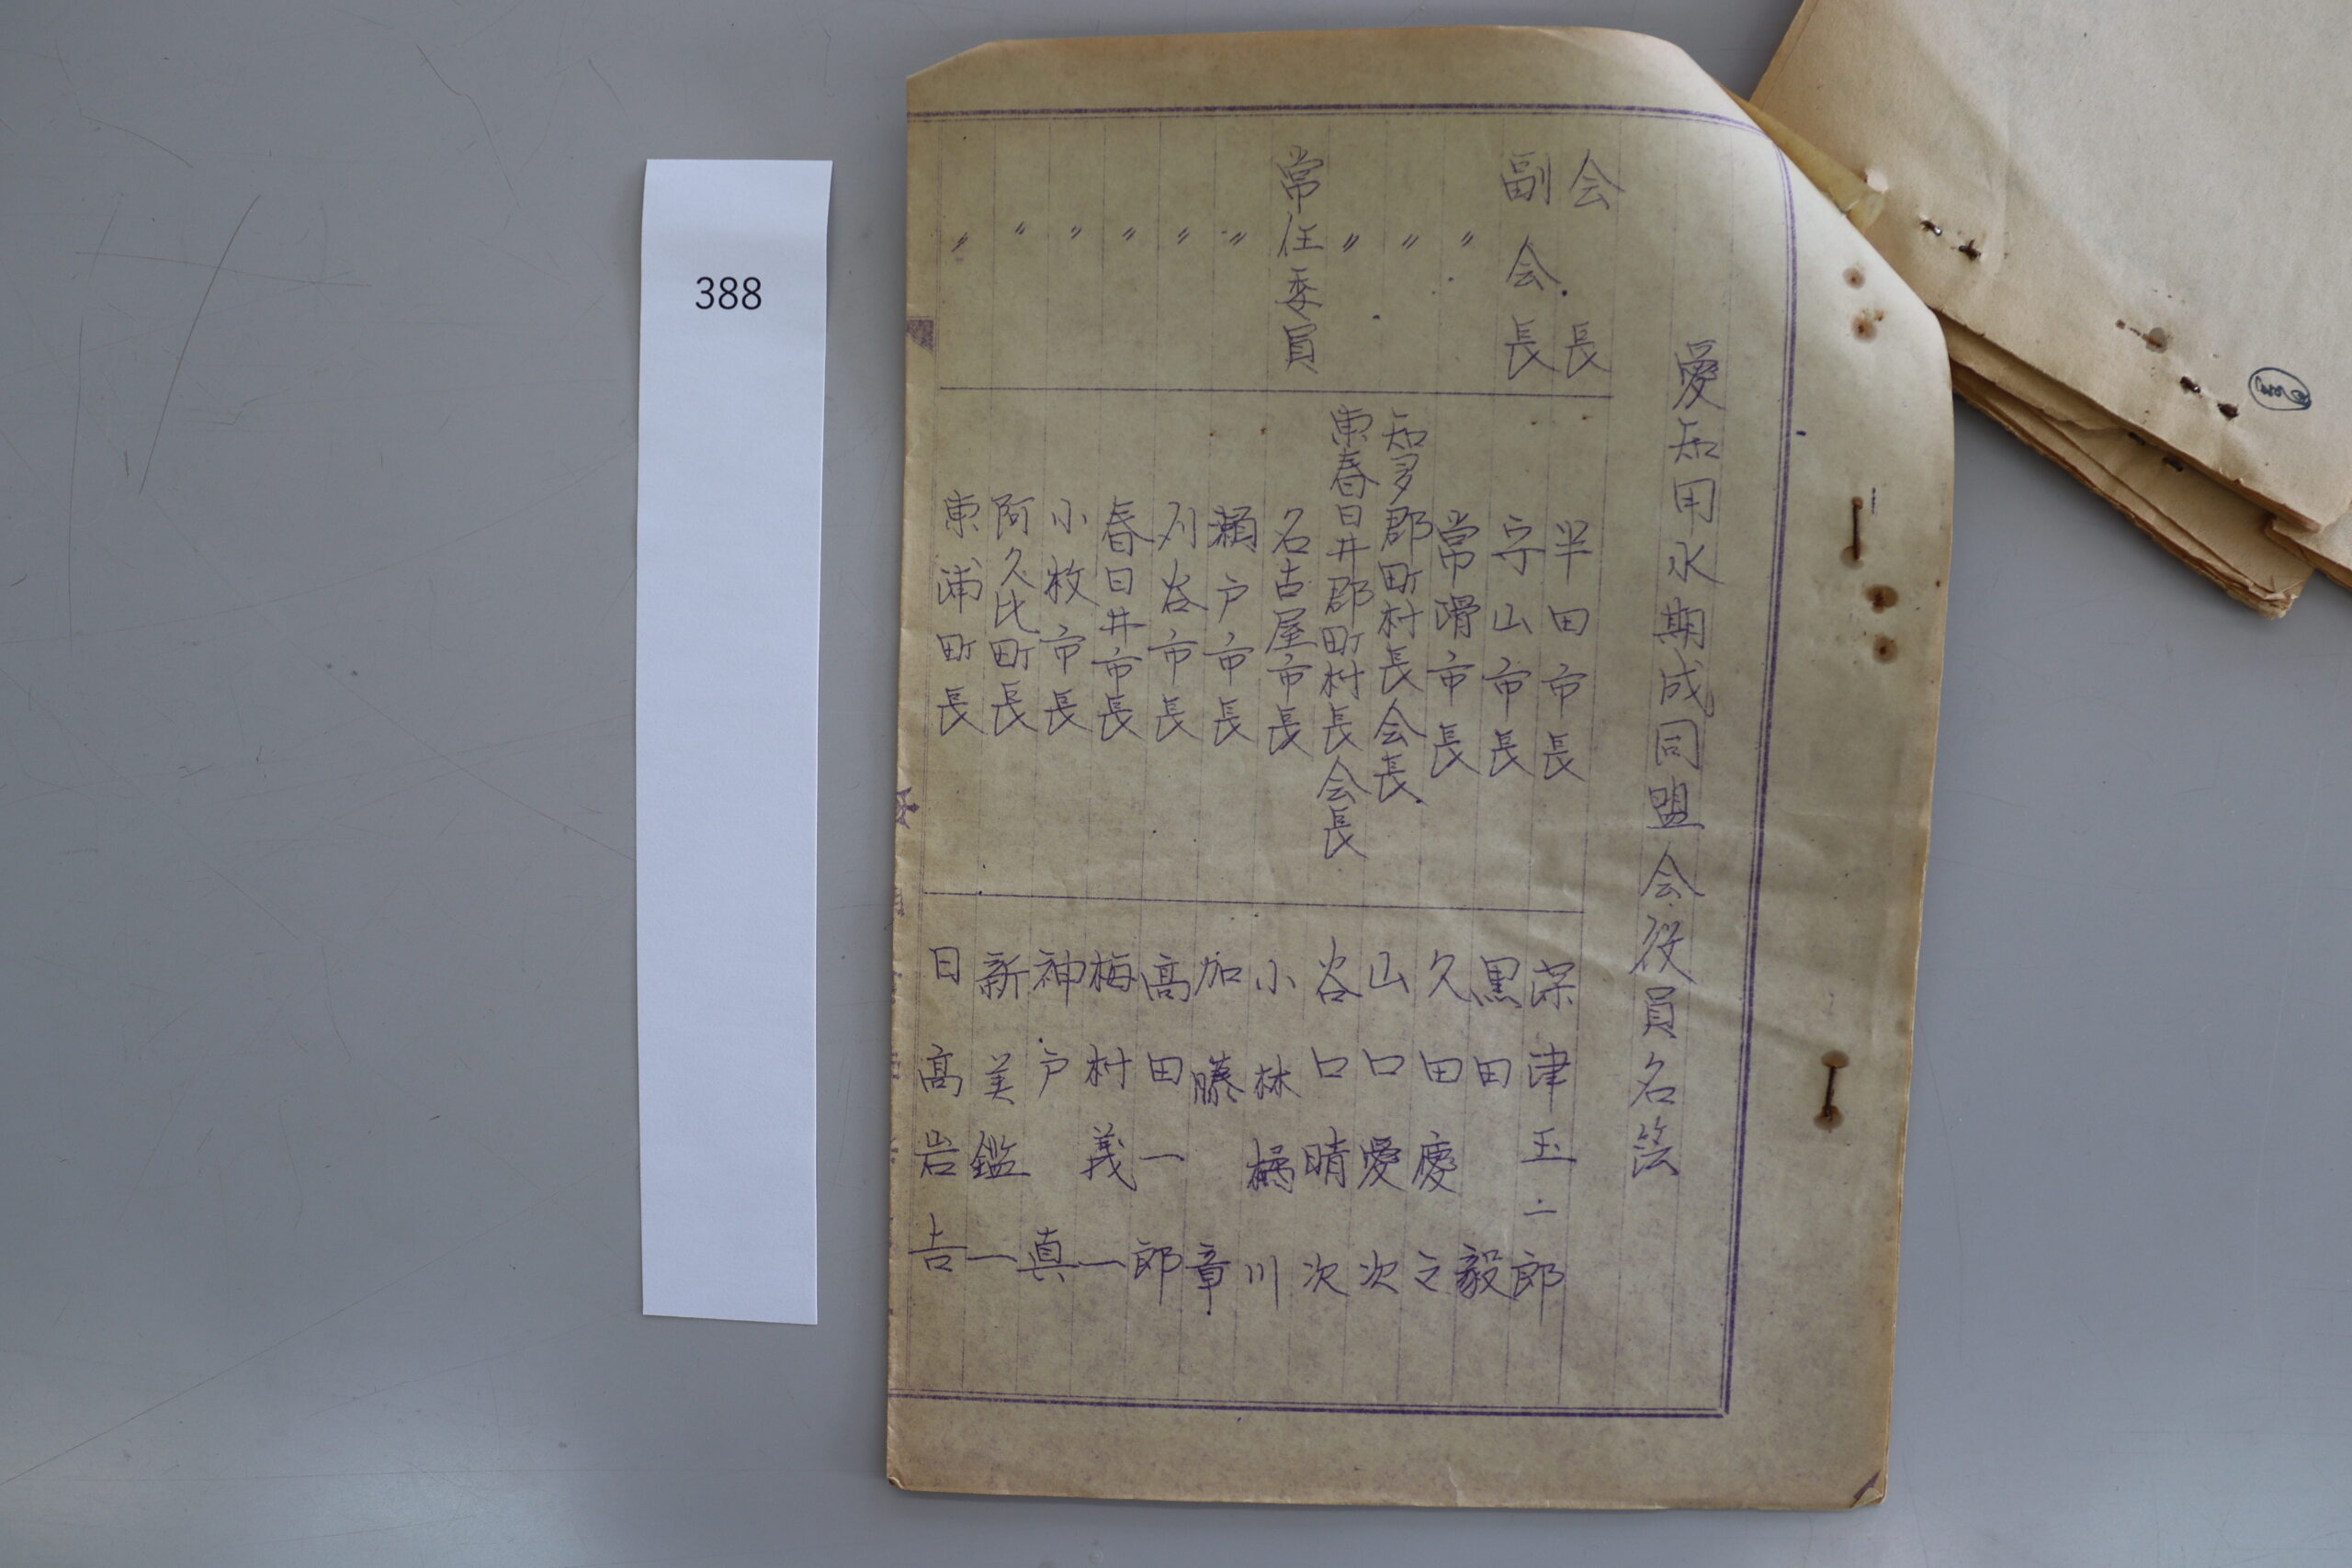 388
愛知用水期成同盟会役員名簿
会長 半田市長 深津玉一郎
副会長 守山市長 黒田毅
〃 常滑市長 久田慶之
〃 知多郡町村長会長 山口愛次
〃 東春日井郡町村長会長 谷口晴次
常任委員 名古屋市長 小林橘川
〃 瀬戸市長 加藤章
〃 刈谷市長 高田一郎
〃 春日井市長 梅村義一
〃 小牧市長 神戸真
〃 阿久比町長 新美鑑一
〃 東浦町長 日高岩吉